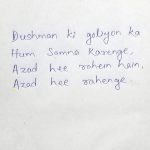 Dushman ki goliyon ka
Hum Samna Karenge,
Azad hee rahein hain,
Azad hee rahenge.